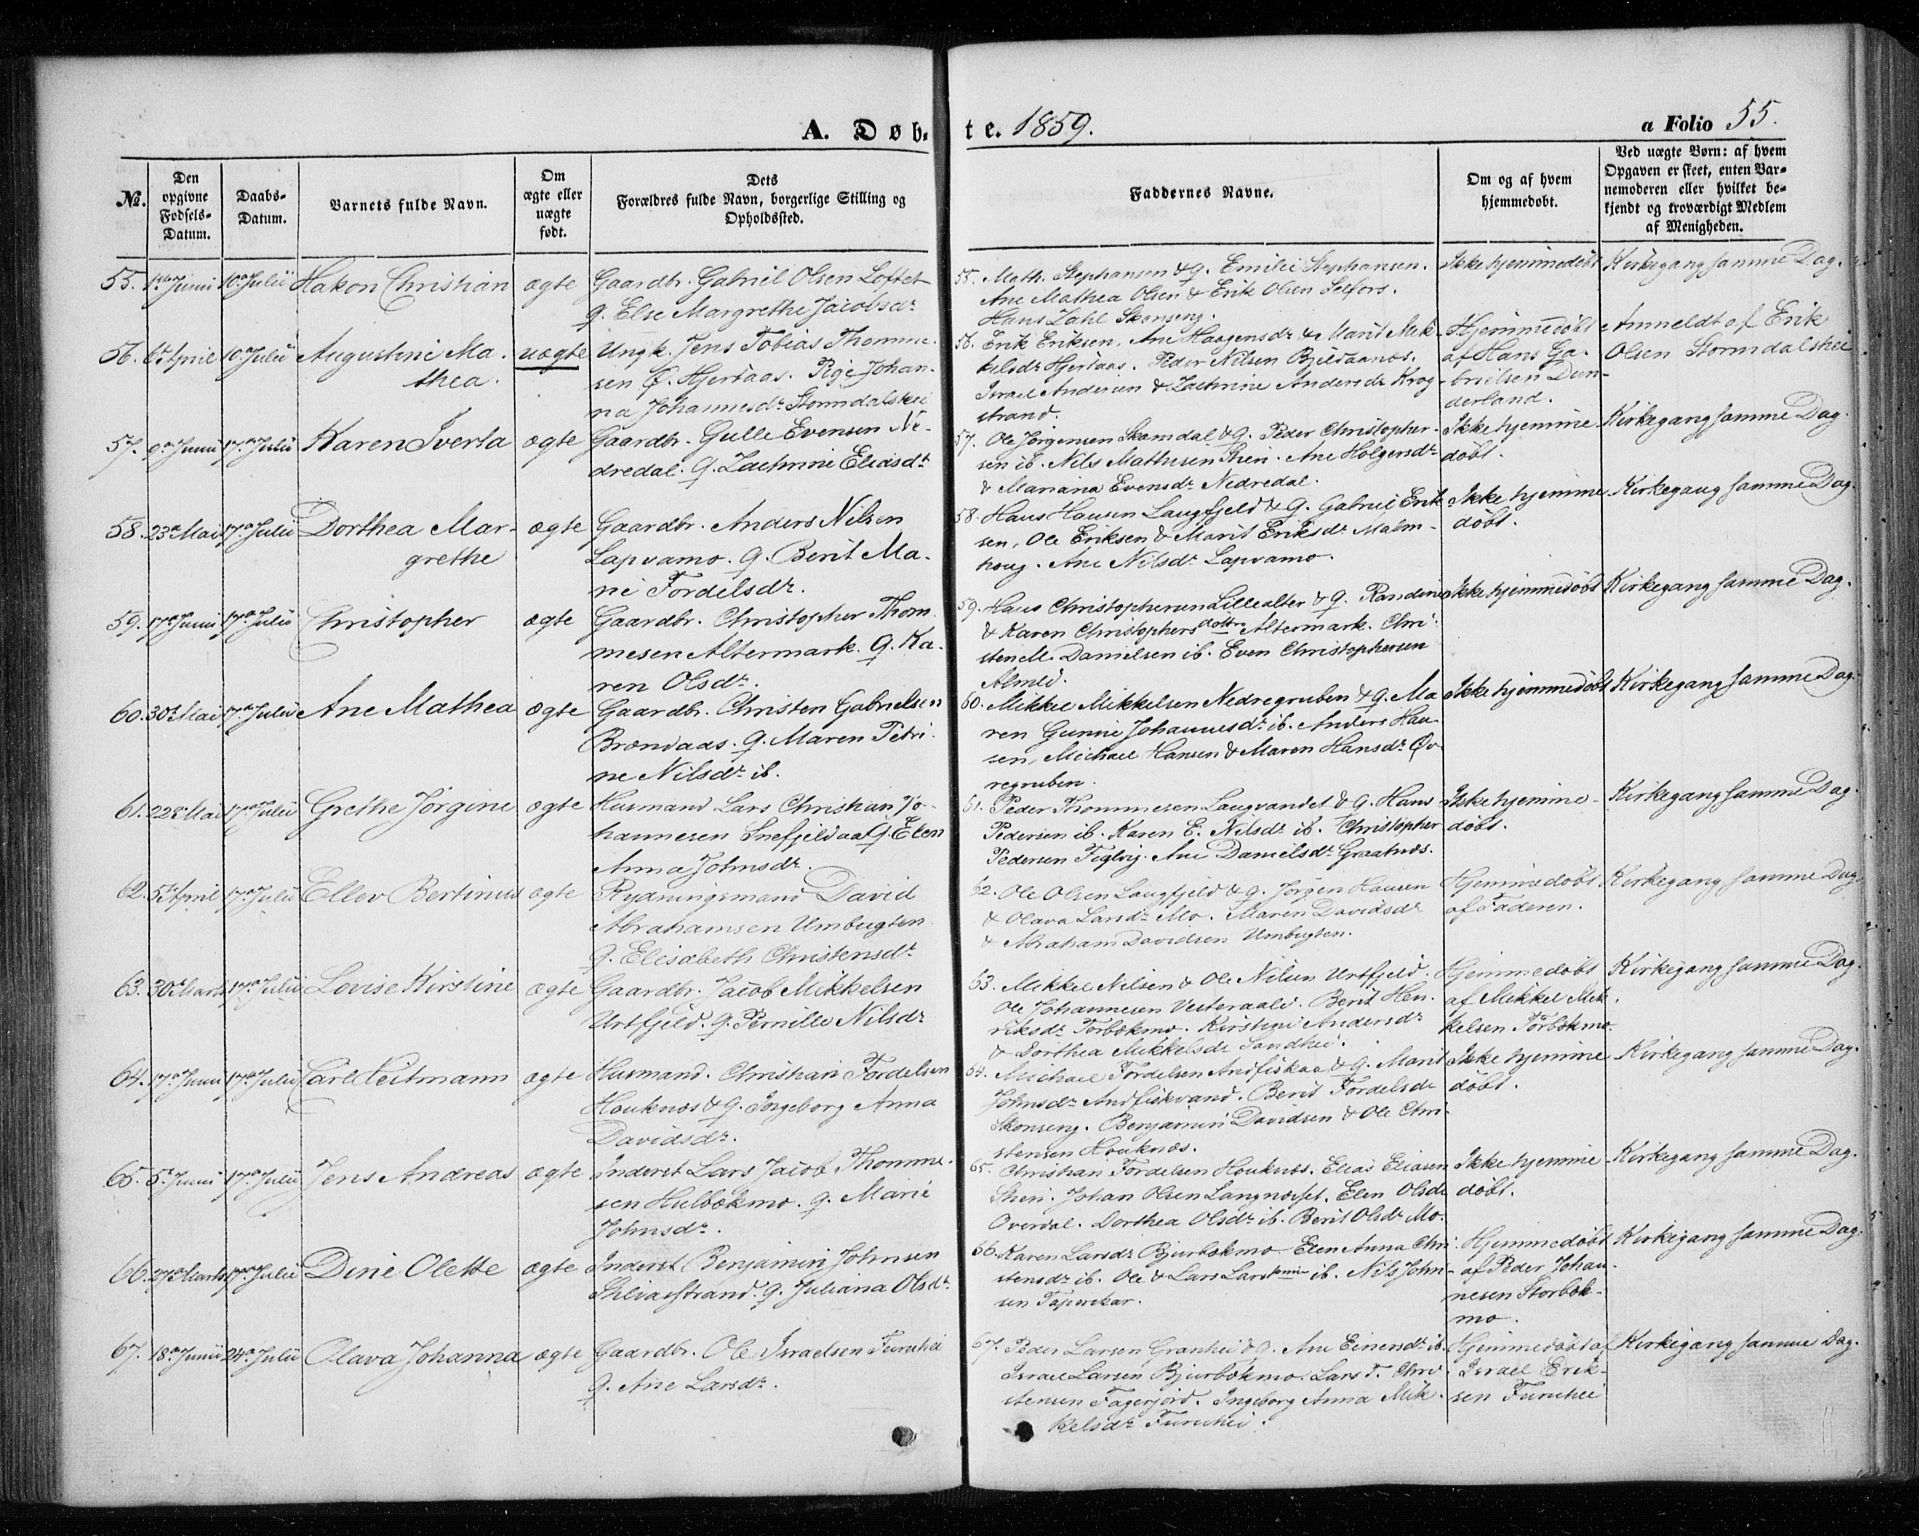 A. Døb-
te. 1859.
a Folio 55.
№.
Den opgivne Fødsels-Datum.
Daabs-Datum.
Barnets fulde Navn.
Om ægte eller uægte født.
Dets Forældres fulde Navn, borgerlige Stilling og Opholdssted.
Faddernes Navne.
Om og af hvem hjemmedøbt.
Ved uægte Børn: af hvem Opgaven er skeet, enten Barnemoderen eller hvilket bekjendt og troværdigt Medlem af Menigheden.
55. Juni 10de Julii Hakon Christian ægte Gaardbr. Gabriel Olsen Loftet
q. Else Margrethe Jacobsdr
55. Math. Stephansen & q. Emilie Stephansen.
Ane Mathea Olsen & Erik Olsen Selfors.
Hans Zahl Skonseng.
Ikke hjemmedøbt Kirkegang samme Dag.
56. April 10 Julii Augustine Ma-
thea.
uægte Ungk. Jens Tobias Thomme-
sen Hjertaas. Pige Johan-
na Johannesdr Stormdalshei
56. Erik Eriksen. Ane Haagensdr & Marit Mik-
kelsdr Hjertaas. Peder Nilsen Bjeldaanæs.
Israel Andersen & Zachrine Andersdr Krog-
strand.
Hjemmedøbt
af Hans Ga-
brielsen Dun-
derland.
Anmeldt af Erik
Olsen Stormdalshei
57. Juni 17de Julii Karen Iverta ægte Gaardbr. Gulle Evensen Ne-
dredal. q. Zachrine Eliasdr
57. Ole Jørgensen Skamdal & q. Peder Christopher-
sen ib. Nils Mathesen Hen. Ane Holgersdr
& Mariana Evensdr Nedredal.
Ikke hjemme-
døbt.
Kirkegang samme Dag.
58. 23de Mai 17de Julii Dorthea Mar-
grethe
ægte Gaardbr. Anders Nilsen
Lapvamo. q. Berit Ma-
rie Fordelsdr.
58. Hans Hansen Langfjeld & q. Gabriel Erik-
sen, Ole Eriksen & Marit Eriksdr Malm-
houg. Ane Nilsdr Lapvamo.
Ikke hjemme
døbt.
Kirkegang samme Dag.
59. 17de Juni 17de Julii Christopher ægte Gaardbr. Christopher Thom-
mesen Altermark. q. Ka-
ren Olsdr.
59. Hans Christophersen Lillealter & q. Randine
& Karen Christophersdottre Altermark. Chri-
sten M. Danielsen ib. Even Christophersen
Almlid.
Ikke hjemmedøbt Kirkegang samme Dag.
60. 30te Mai 17de Julii Ane Mathea ægte Gaardbr. Christen Gabrielsen
Brændaas. q. Maren Petri-
ne Nilsdr ib.
60. Mikkel Mikkelsen Nedregruben & q. Ma-
ren Gunine Johannesdr ib. Anders Han-
sen, Michael Hansen & Maren Hansdr Øv-
regruben.
Ikke hjemmedøbt Kirkegang samme Dag.
61. 22de Mai 17de Julii Grethe Jørgine ægte Husmand. Lars Christian Jo-
hannesen Snefjeldaa q. Elen
Anna Johnsdr.
61. Peder Thommesen Langvandet & q. Hans
Pedersen ib. Karen E. Nilsdr ib. Christopher
Pedersen Teglvig. Ane Danielsdr Graatnæs.
Ikke hjemme-
døbt.
Kirkegang samme Dag
62. 5te April 17de Julii Ellev Bertinus ægte Rydningsmand David
Abrahamsen Umbugten
q. Elisabeth Christensdr
62. Ole Olsen Langfjeld & q. Jørgen Hansen
& Olava Larsdr Mo. Maren Davidsdr
& Abraham Davidsen Umbugten.
Hjemmedøbt
af Faderen.
Kirkegang samme Dag
63. 30te Marts 17de Julii Lovise Kirstine ægte Gaardbr. Jacob Mikkelsen
Urtfjeld. q. Pernille Nilsdr
63. Mikkel Nilsen & Ole Nilsen Urtfjeld.
Ole Johannesen Vesteraali. Berit Hen-
riksdr Forbekmo. Kirstine Andersdr
& Dorthea Mikkelsdr Sandhei.
Hjemmedøbt
af Mikkel Mik-
kelsen Forbekmo
Kirkegang samme Dag.
64. 17de Juni 17de Julii Carl Neitmann ægte Husmand. Christian Fordelsen
Houknæs & q. Ingeborg Anna
Davidsdr.
64. Michael Fordelsen Andfiskaa & q. Marit
Johnsdr Andfiskvand. Berit Fordelsdr
Skonseng. Benjamin Davidsen & Ole Chri-
stensen Houknæs.
Ikke hjemme
døbt.
Kirkegang samme Dag.
65. 5te Juni 17de Julii Jens Andreas ægte Inderst Lars Jacob Thomme-
sen Hulbekmo. q. Marie
Johnsdr.
65. Christian Fordelsen Houknes. Elias Eliasen
Hen. Johan Olsen Langnæsset. Elen Olsdr
Overdal. Dorthea Olsdr ib. Berit Olsdr Mo.
Ikke hjemme
døbt.
Kirkegang samme Dag.
66. 27de Marts 17de Julii Dine Olette ægte Inderst Benjamin Johnsen
q. Juliana Olsdr.
66. Karen Larsdr Bjurbekmo. Elen Anna Chri-
stensdr ib. Ole & Lars Larssønner ib. Nils John-
sen Tapeskar.
Hjemmedøbt
af Peder Johan-
nesen Storbek-
mo.
Kirkegang samme Dag.
67. 18de Junii 24de Julii Olava Johanna ægte Gaardbr. Ole Israelsen Furuhei
q. Ane Larsdr.
67. Peder Larsen Granhei & q. Ane Einersdr ib.
Israel Larsen Bjurbekmo. Lars T. Chri-
stensen Fagerjord. Ingeborg Anna Mik-
kelsdr Furuhei.
Hjemmedøbt af
Israel Erik-
sen Furuhei
Kirkegang samme Dag.